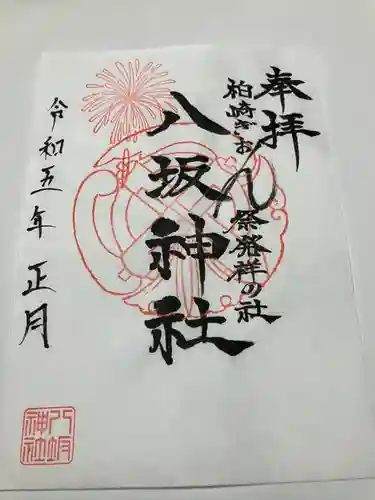 奉拝
柏崎ぎおん祭発祥の社
八坂神社
令和五年 正月
八坂
神社